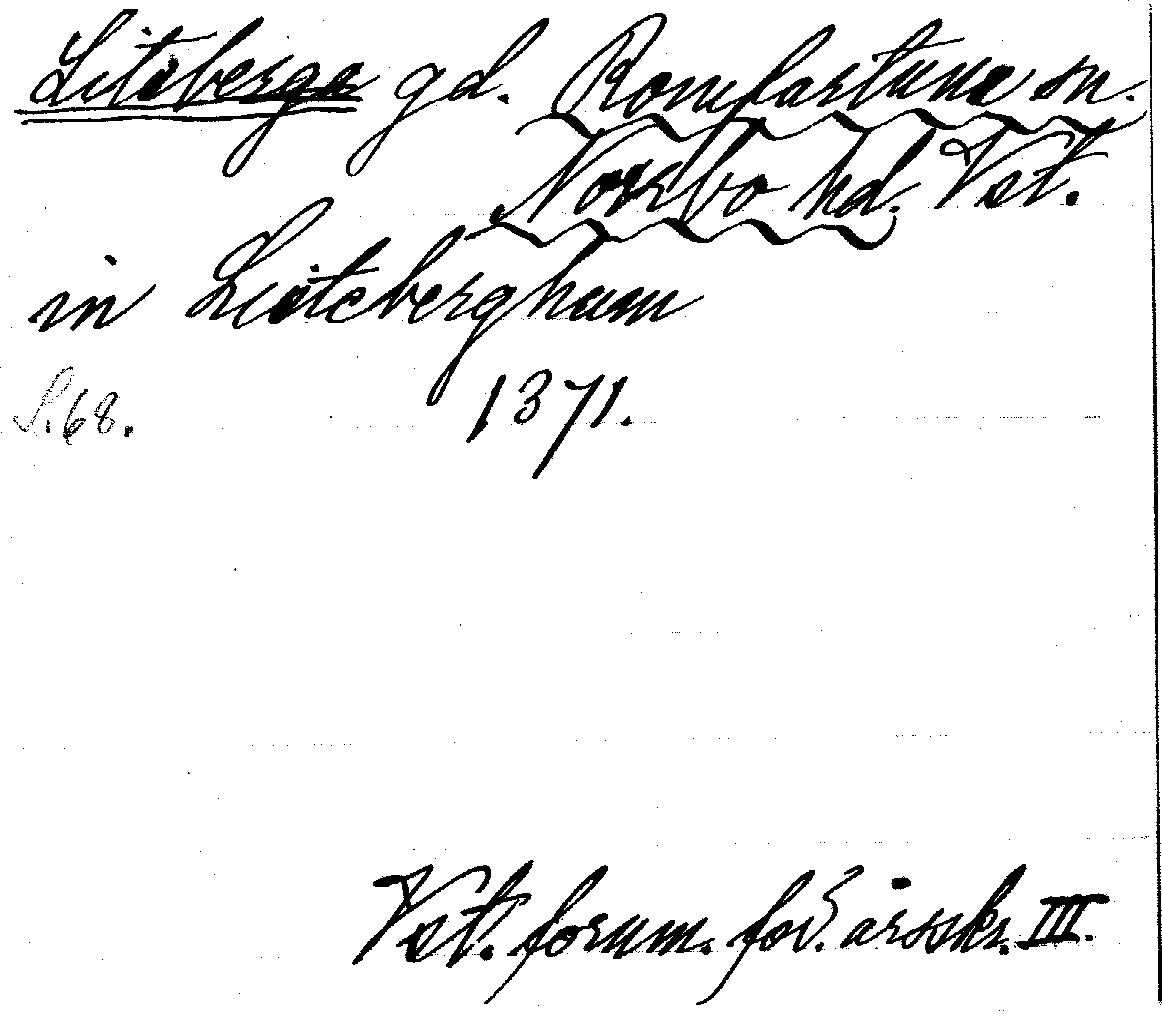 Litsberga gd. Romfartuna sn.
Norrbo hd. Vst.
in Liiteberghum
S. 68. 1371.
Vst. fornm. för. årsskr. III.